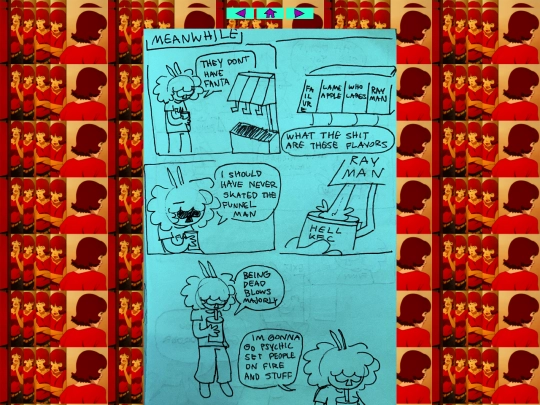 MEANWHILE
THEY DONT
HAVE
FANTA
FA
IL
UR
E
LAME
APPLE
WHO
CARES
RAY
MAN
WHAT THE SHIT
ARE THESE FLAVORS
I SHOULD
HAVE NEVER
SKATED THE
FUNNEL
MAN
RAY
MAN
HELL
KFC
BEING
DEAD
BLOWS
MAJORLY
IM GONNA
GO PSYCHIC
SET PEOPLE
ON FIRE
AND STUFF